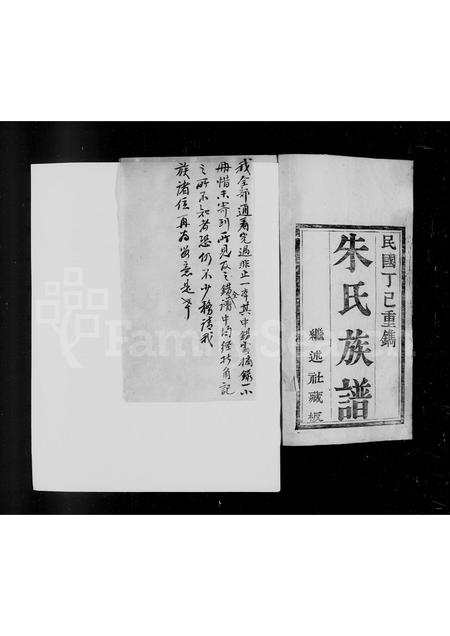 民國丁巳重鐫
朱氏族譜
繼述社藏板
我全部通看完過非止一本其中錯寫摘錄一小
冊惜未寄到所見反之錯全譜中均經折角記
之所不知者恐仍不少務請我
族諸位再為留意是幸
FamilySearch